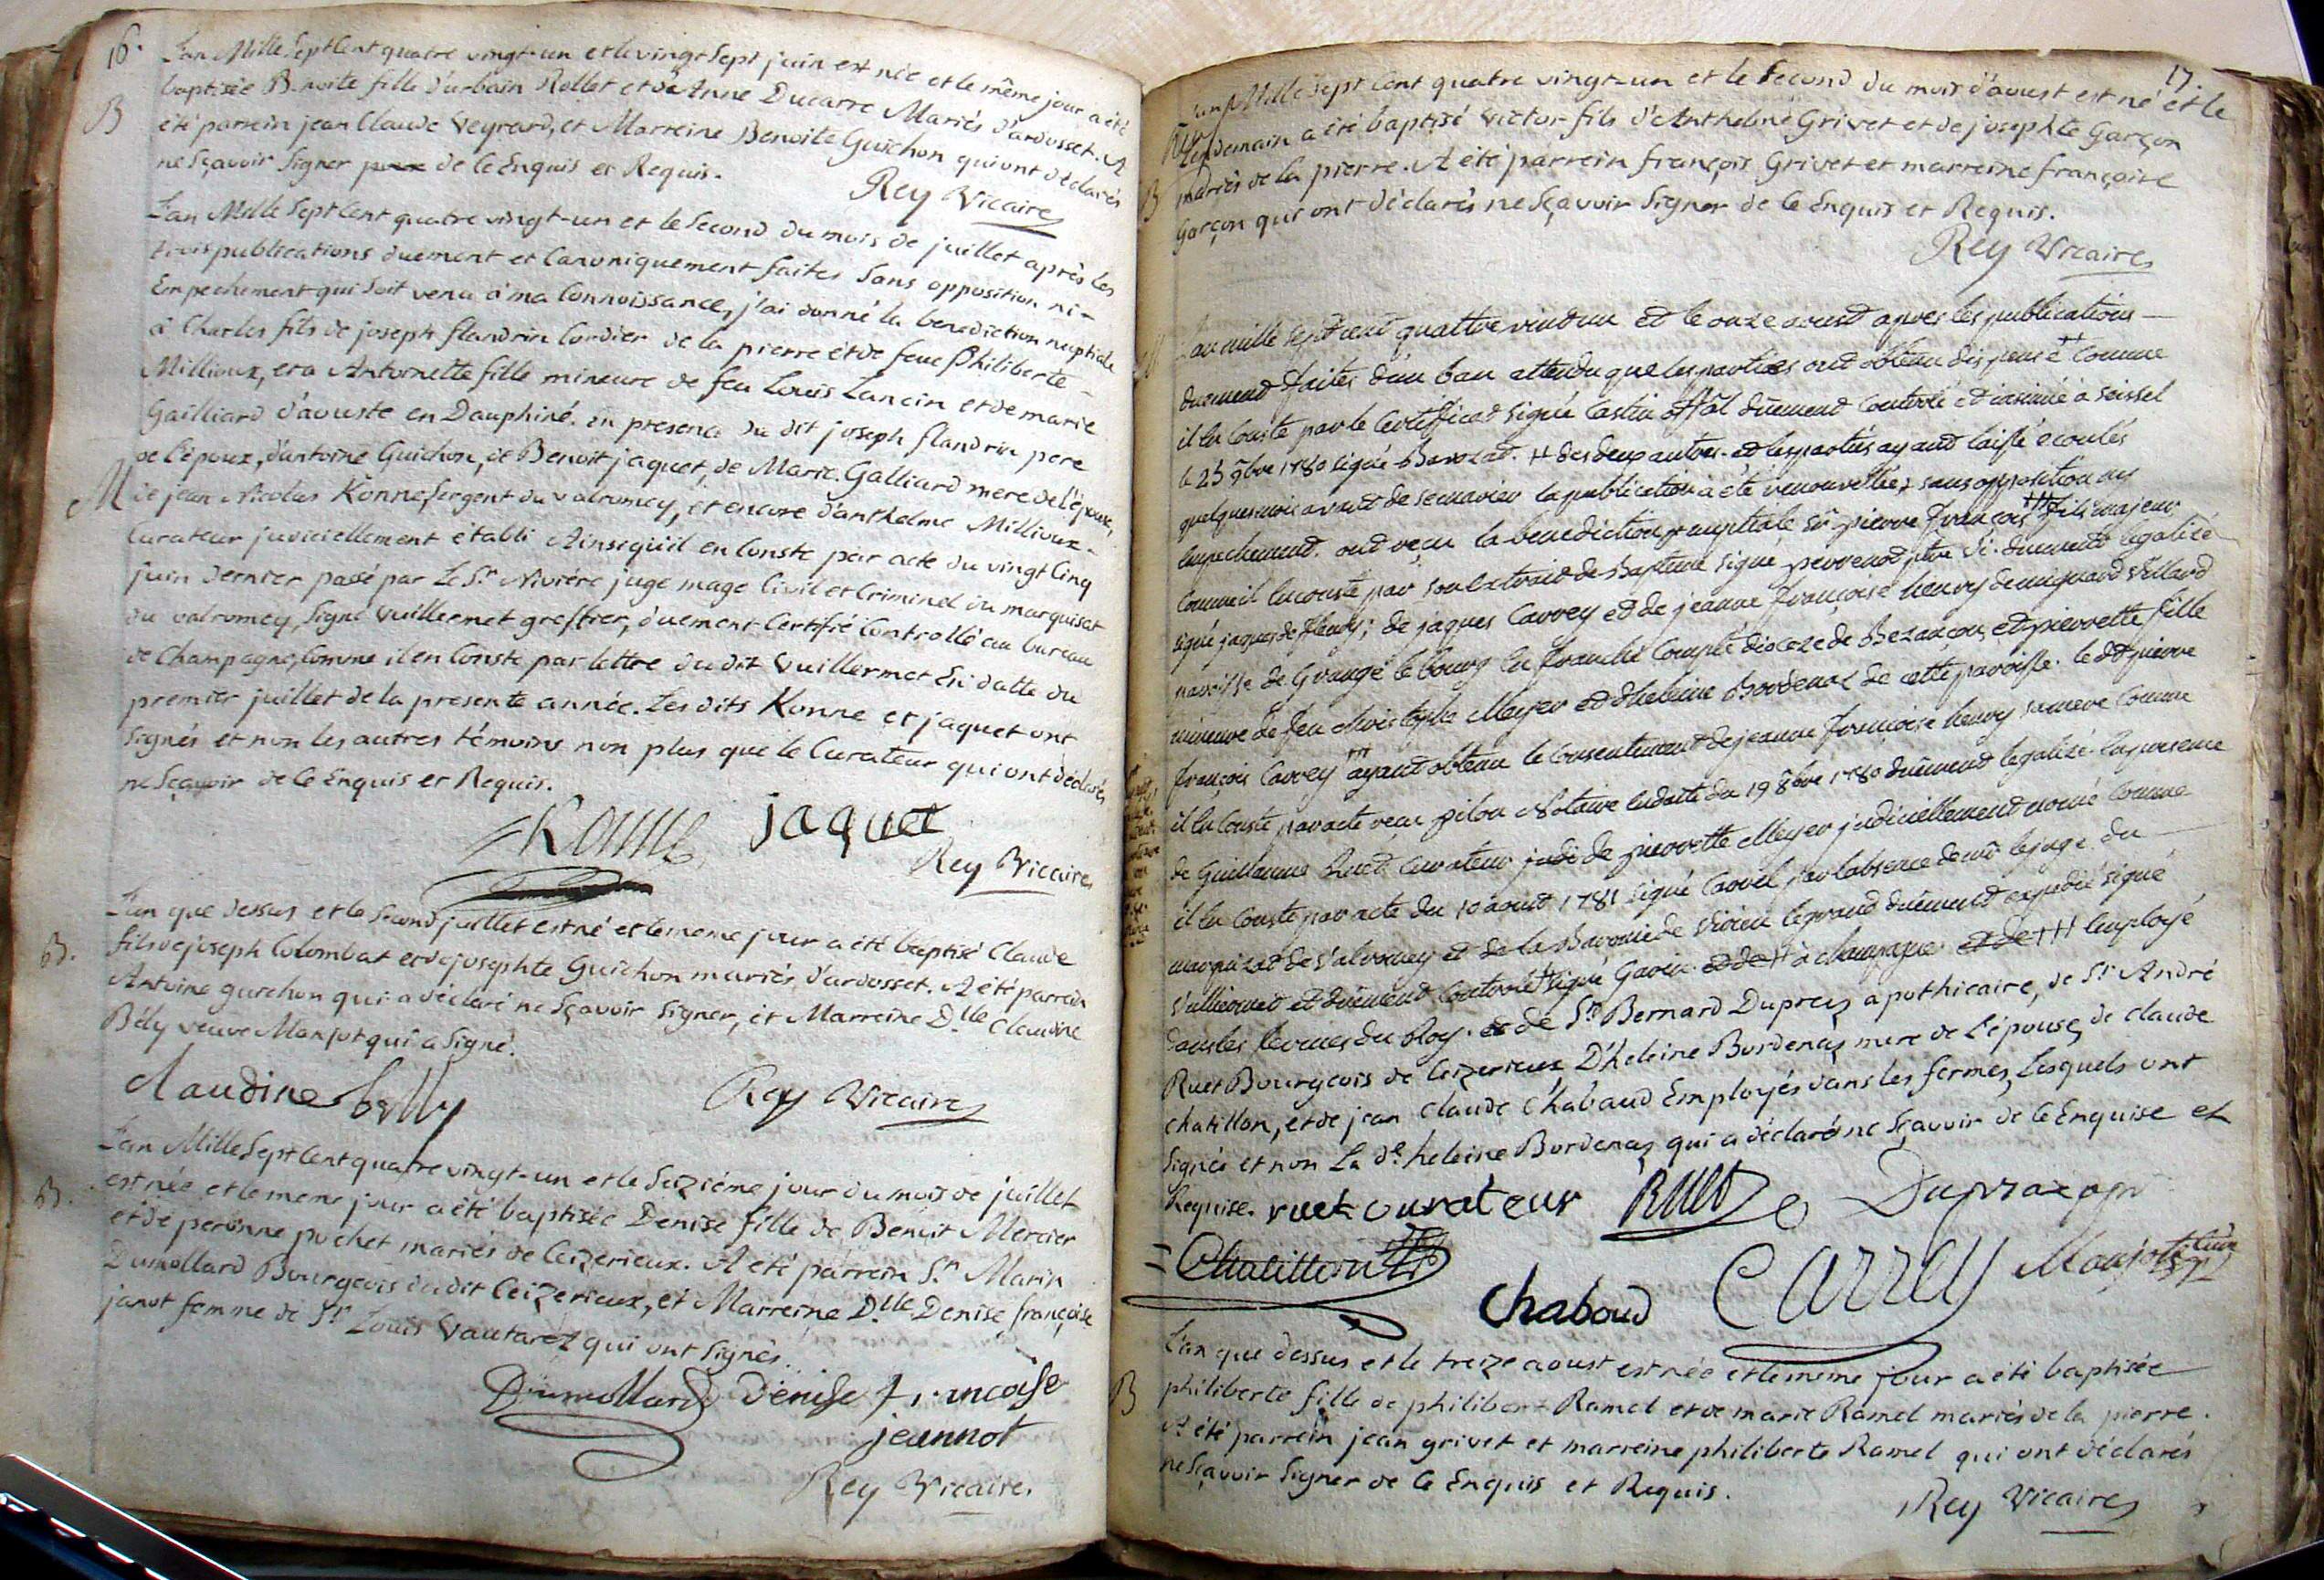 16.
L'an Mille Sept Cent quatre vingt-un et le vingt Sept juin est née et le même jour a été
B
baptisée Benoite fille d'urbain Rollet et de Anne Ducarre Mariés d'ardosset. A
été parrein jean Claude Veyrard, et Marreine Benoite Guichon qui ont déclarés
ne Sçavoir Signer de Ce Enquis et Requis.
Rey Vicaire
L'an Mille Sept Cent quatre vingt-un et le Second du mois de juillet après les
trois publications duement et Canoniquement faites Sans opposition ni
Empechement qui Soit venu à ma Connoissance, j'ai donné la benediction nuptiale
à Charles fils de joseph flandrin Cordier de la pierre et de feue Philiberte
Millioux, et a Antoinette fille mineure de feu Louis Lancin et de marie
Gailliard d'aouste en Dauphiné. en presence du dit joseph flandrin pere
de l'époux, d'antoine Guichon, de Benoit jaquet, de Marie Galliard mere de l'épouse,
M
de jean Nicolas Konne Sergent du valromey, et encore d'anthelme Millioux
Curateur judiciellement établi Ainsi qu'il en Conste par acte du vingt Cinq
juin dernier passé par Le Sr. Nivière juge mage Civil et Criminel du marquisat
du valromey, Signé Vuillermet greffier, duement Certifié Controllé au bureau
de Champagne, Comme il en Conste par lettre du dit Vuillermet En datte du
premier juillet de la presente année. Les dits Konne et jaquet ont
Signés et non les autres témoins non plus que le Curateur qui ont déclarés
ne Sçavoir de Ce Enquis et Requis.
Konne jaquet
Rey Vicaire
L'an que dessus et le Second juillet est né et le meme jour a été baptisé Claude
B.
fils de joseph Colombat et de josephte Guichon mariés d'ardosset. A été parrein
Antoine guichon qui a déclaré ne Sçavoir Signer, et Marreine D.lle Claudine
Bély veuve Manjot qui a Signé.
Claudine belly Rey Vicaire
L'an Mille Sept Cent quatre vingt-un et le Seizième jour du mois de juillet
B.
est née et le meme jour a été baptisée Denise fille de Benoit Mercier
et de peronne pochet mariés de Ceizerieux. A été parrein S.r Marin
Dumollard Bourgeois dudit Ceizerieux, et Marreine D.lle Denise françoise
janot femme de Sr. Louis Vautaret qui ont Signés.
Dumollard Denise francoise
jeannot
Rey Vicaire.
17.
L'an Mille Sept Cent quatre vingt-un et le Second du mois d'aoust est né et le
lendemain a été baptisé Victor fils d'Anthelme Grivet et de josephte Garçon
B
mariés de la pierre. A été parrein françois Grivet et marreine françoise
Garçon qui ont déclarés ne Sçavoir Signer de Ce Enquis et Requis.
Rey Vicaire
L'an mille sept cent quattre vint un et le onze aoust apres les publications
duement faites d'un ban attendu que les parties ont obtenu dispense ++ comme
il en conste par le Certifficat signé Castin offal duement controlé et insinué à seissel
le 25 9bre 1780 signé ++ des deux autres et les parties ayant laissé ecoulés
quelques mois avant de se marier la publication a été renouvellée, sans opposition ny
empechement. ont reçu la benediction nuptiale Sr pierre françois +++ fils majeur
comme il en conste par son extrait de Baptême signé perrenot ptre duement legalisé
signé jaques de fleury; de jaques Carrey et de jeanne françoise henry de mignard villard
paroisse de Grange le bourg en franche Compté dioceze de Bezançon, et pierrette fille
mineure de feu christophe Meyer et d'heleine Bordenaz de cette paroisse. le dt pierre
françois Carrey ayant obtenu le consentement de jeanne françoise henry sa mere comme
il en conste par acte reçu pilon Notaire en date du 19 8bre 1780 duement legalisé. En presence
de Guillaume Ruet Curateur de pierrette Meyer judiciellement nomé comme
il en conste par acte du 10 aoust 1781 signé Carrel par l'absence de mr le juge du
marquisat de Valromey et de la Baronie de virieu legrand duement expedié signé
Vullermet et duement Controlé signé Gavin à champagne +++ employé
dans les fermes du Roy. de Sr. Bernard Duprez apothicaire, de Sr. André
Ruet Bourgeois de Ceizerieux D'heleine Bordenaz mere de l'épouse, de claude
chatillon, et de jean claude Chabaud Employés dans les fermes, Lesquels ont
Signés et non La de. heleine Bordenaz qui a déclaré ne Sçavoir de Ce Enquise et
Requise. ruet curateur Ruet
Chatillon Chaboud Carrey Manjot
L'an que dessus et le treize aoust est née et le meme jour a été baptisée
B
philiberte fille de philibert Ramel et de marie Ramel mariés de la pierre.
A été parrein jean grivet et marreine philiberte Ramel qui ont déclarés
ne Sçavoir Signer de Ce Enquis et Requis.
Rey Vicaire